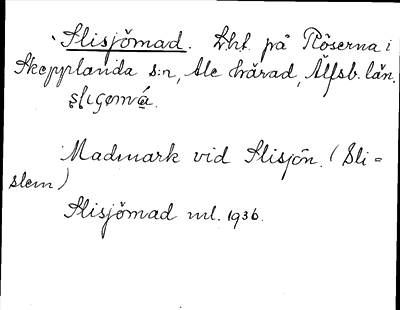 Slisjömad. Lht. på Röserna i
Skepplanda s:n, Ale härad, Älfsb. län.
Madmark vid Slisjön. (Sli-
slem)
Slisjömad ml. 1936.